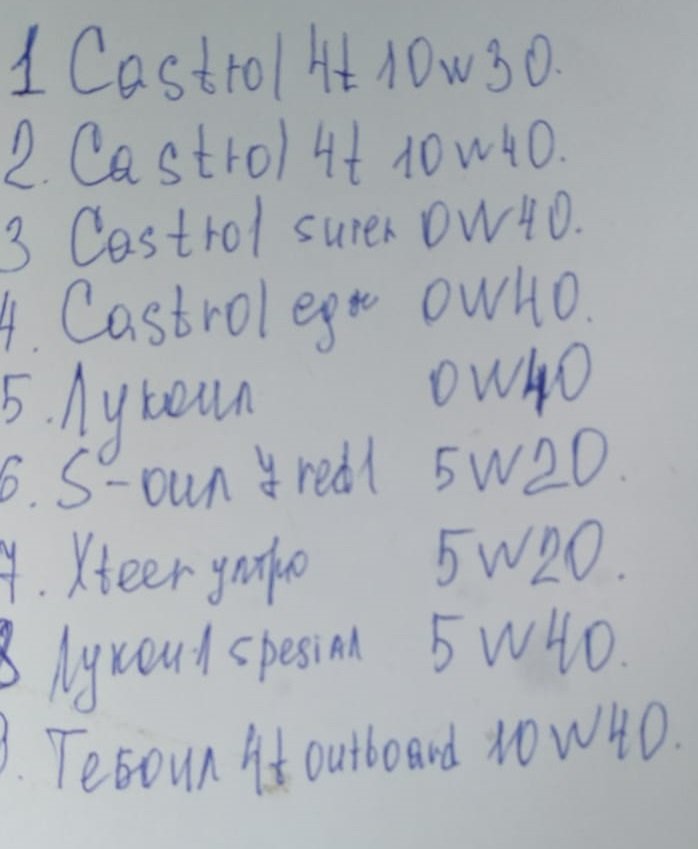 1 Castrol 4t 10w30.
2. Castrol 4t 10w40.
3 Castrol super 0W40.
4. Castrol egж 0W40.
5. Лукоил 0W40
6. S-оил 7 red1 5W20.
7. Xteer ултра 5W20.
8 Лукоил spesiал 5W40.
9. Тебоил 4t outboard 10W40.